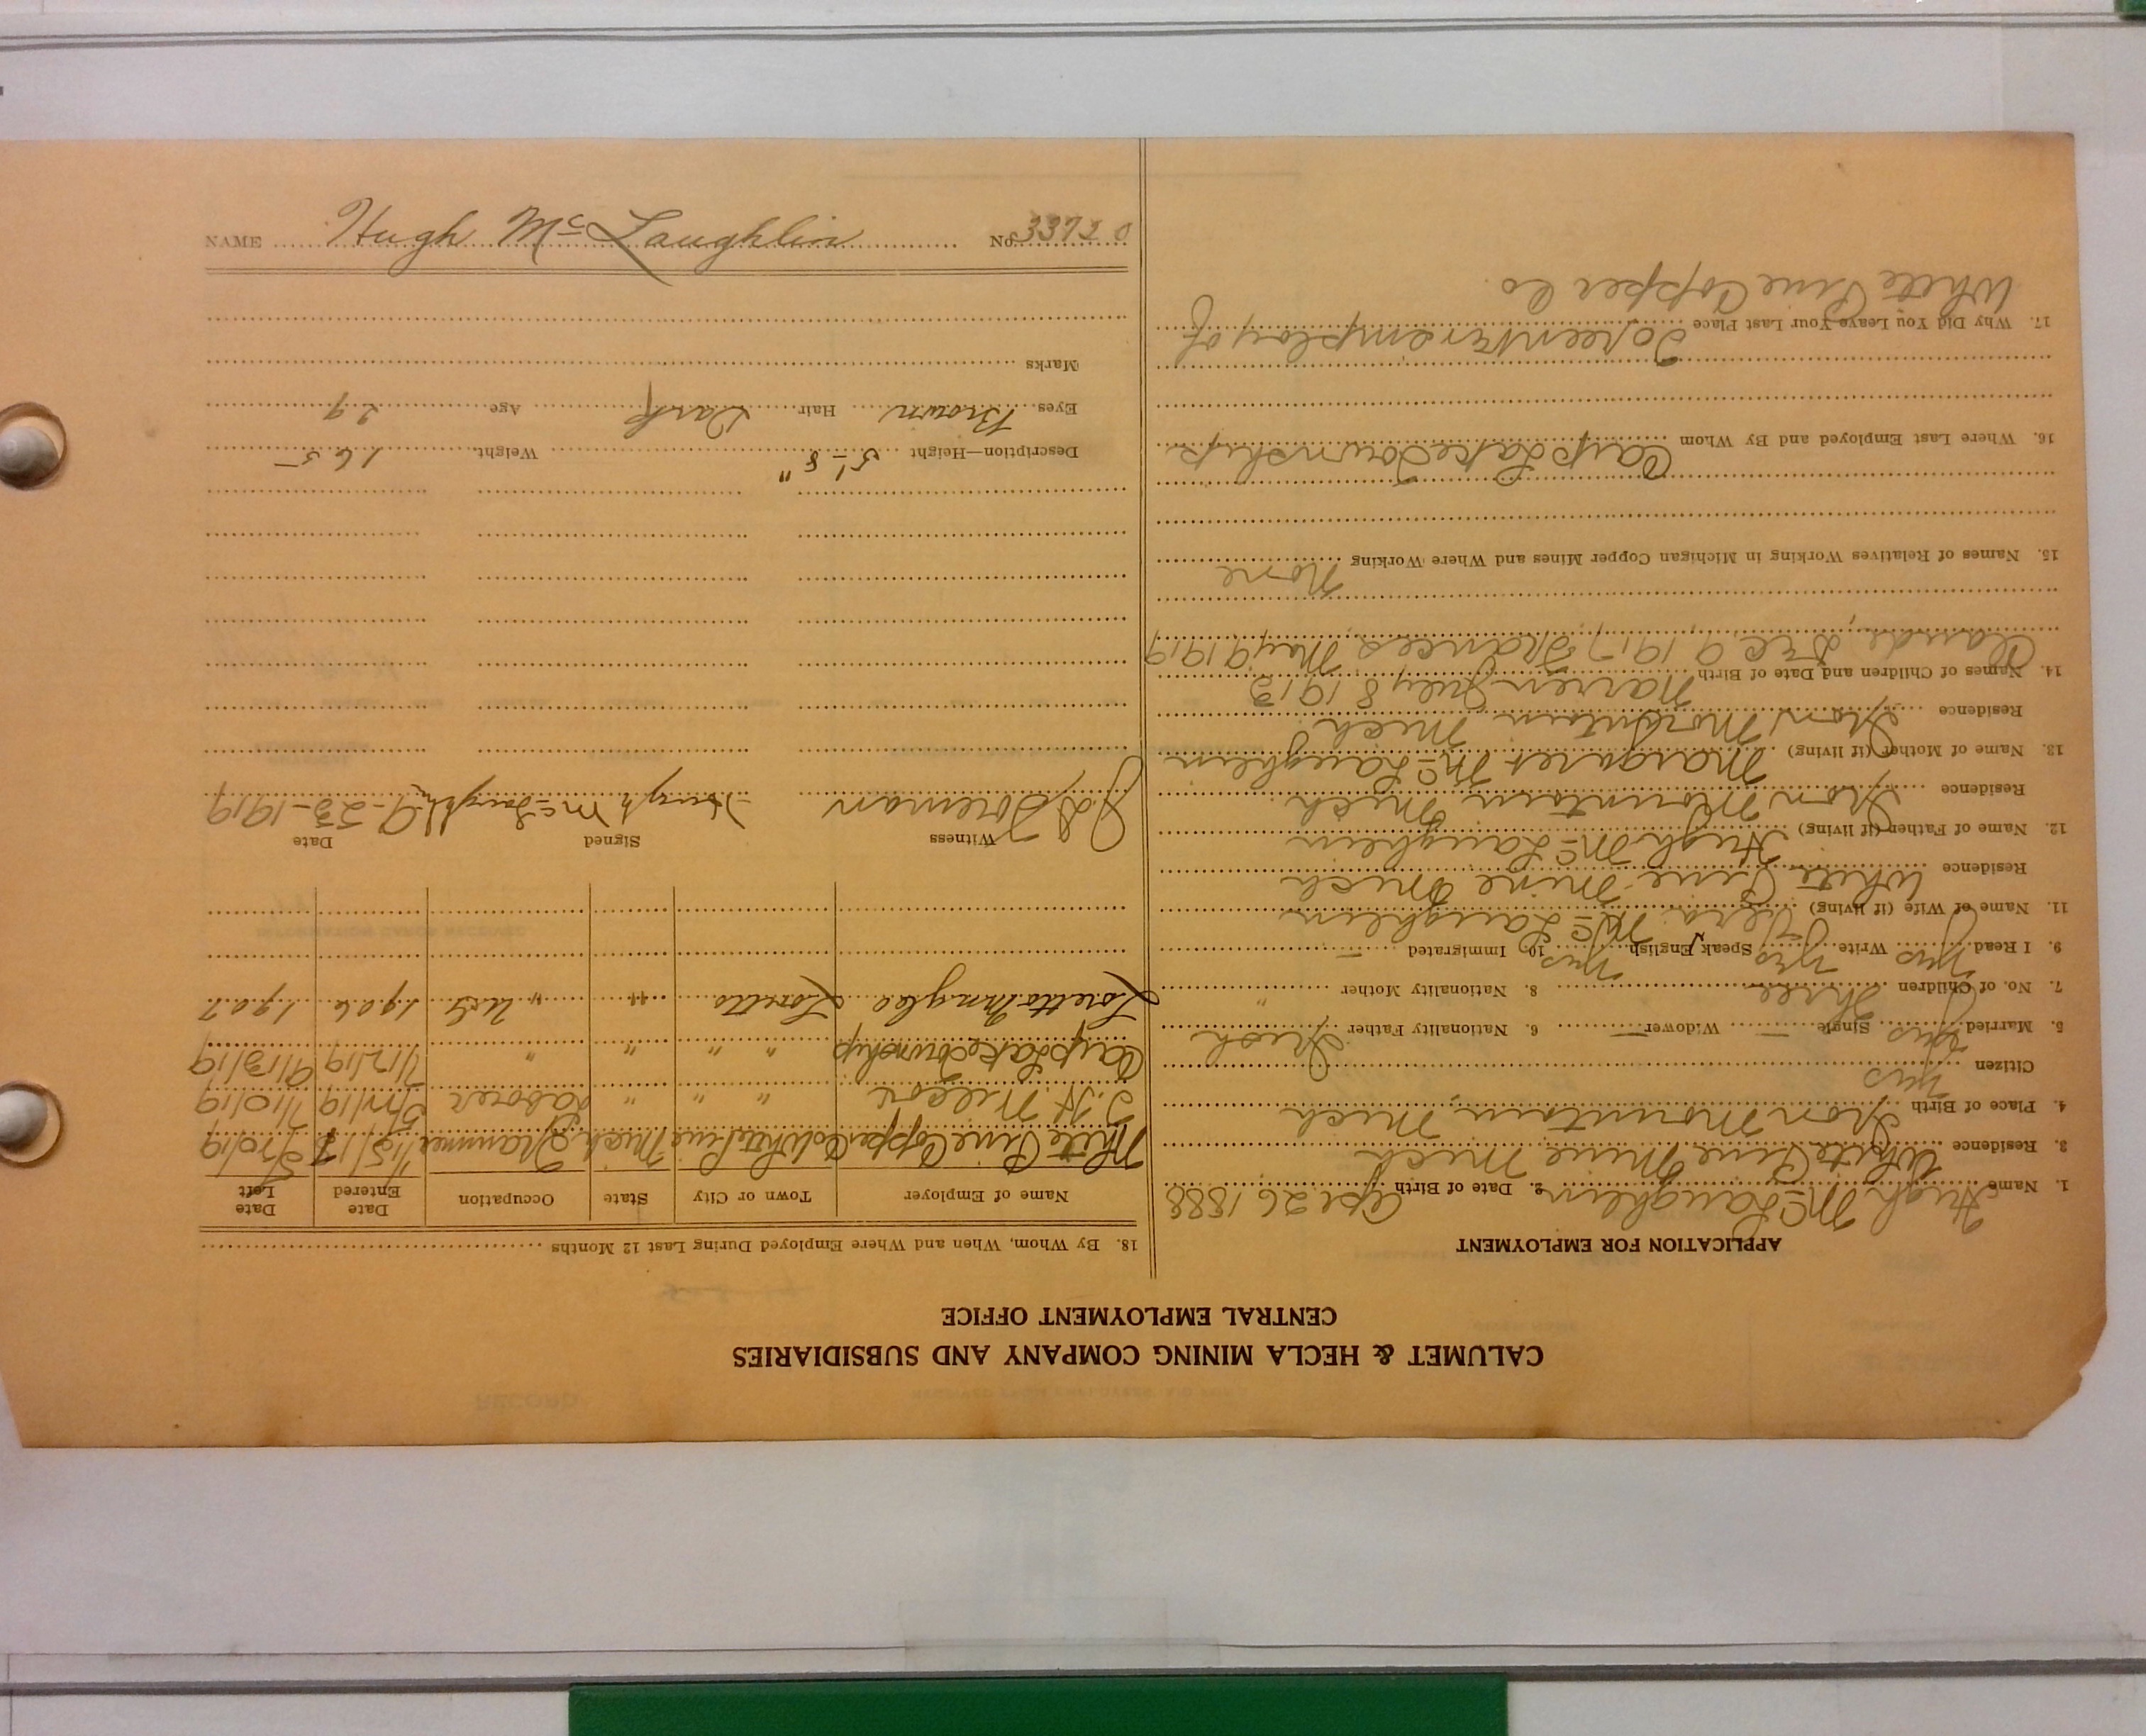 CALUMET & HECLA MINING COMPANY AND SUBSIDIARIES
CENTRAL EMPLOYMENT OFFICE
APPLICATION FOR EMPLOYMENT
1. Name Hugh McLaughlin 2. Date of Birth Apr 26 1888
3. Residence White Pine Mine Mich
4. Place of Birth Iron Mountain, Mich
Citizen yes
5. Married yes Single — Widower — 6. Nationality Father Irish
7. No. of Children Three 8. Nationality Mother "
9. I Read yes Write yes Speak English yes 10. Immigrated —
11. Name of Wife (if living) McLaughlin
Residence White Pine Mine Mich
12. Name of Father (if living) Hugh McLaughlin
Residence Iron Mountain Mich
13. Name of Mother (if living) Margaret McLaughlin
Residence Iron Mountain Mich
14. Names of Children and Date of Birth Warren July 8 1913
Claude Dec 9 1917, Frances May 9 1919
15. Names of Relatives Working in Michigan Copper Mines and Where Working
None
16. Where Last Employed and By Whom Carp Lake Township
17. Why Did You Leave Your Last Place To reenter employ of
White Pine Copper Co.
18. By Whom, When and Where Employed During Last 12 Months
Name of Employer Town or City State Occupation Date Entered Date Left
White Pine Copper Co White Pine Mich Trammer 5/10/19
J.H. Wilcox " " " Laborer 7/10/19
Carp Lake Township " " " " 7/12/19 9/13/19
Loretto Mng Co Loretto " " 1906 1907
Witness Signed Date
Foreman Hugh McLaughlin 9-23-1919
Description—Height 5'-8" Weight 165
Eyes Brown Hair Dark Age 29
Marks
NAME Hugh McLaughlin No.